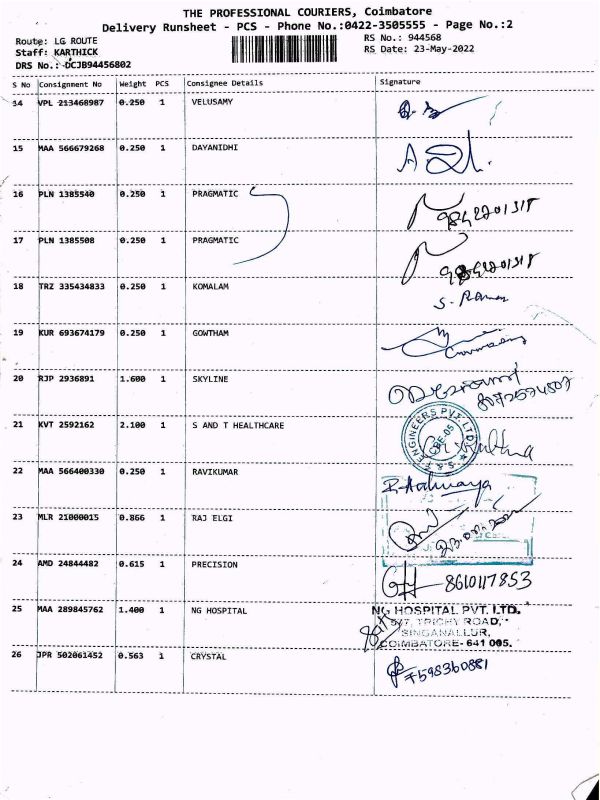 THE PROFESSIONAL COURIERS, Coimbatore
Delivery Runsheet - PCS - Phone No.:0422-3505555 - Page No.:2
Route: LG ROUTE
Staff: KARTHICK
DRS No.: DCJB94456802
RS No.: 944568
RS Date: 23-May-2022
S No Consignment No Weight PCS Consignee Details Signature
14 VPL 213468987 0.250 1 VELUSAMY
15 MAA 566679268 0.250 1 DAYANIDHI
16 PLN 1385540 0.250 1 PRAGMATIC 9842201318
17 PLN 1385508 0.250 1 PRAGMATIC
18 TRZ 335434833 0.250 1 KOMALAM
19 KUR 693674179 0.250 1 GOWTHAM
20 RJP 2936891 1.600 1 SKYLINE
21 KVT 2592162 2.100 1 S AND T HEALTHCARE
S & T ENGINEERS PVT. LTD. CBE-05
22 MAA 566400330 0.250 1 RAVIKUMAR
23 MLR 21000015 0.866 1 RAJ ELGI
24 AMD 24844482 0.615 1 PRECISION 8610117853
25 MAA 289845762 1.400 1 NG HOSPITAL
NG HOSPITAL PVT. LTD.
577, TRICHY ROAD,
SINGANALLUR,
COIMBATORE- 641 005.
26 JPR 502061452 0.563 1 CRYSTAL 7598360881